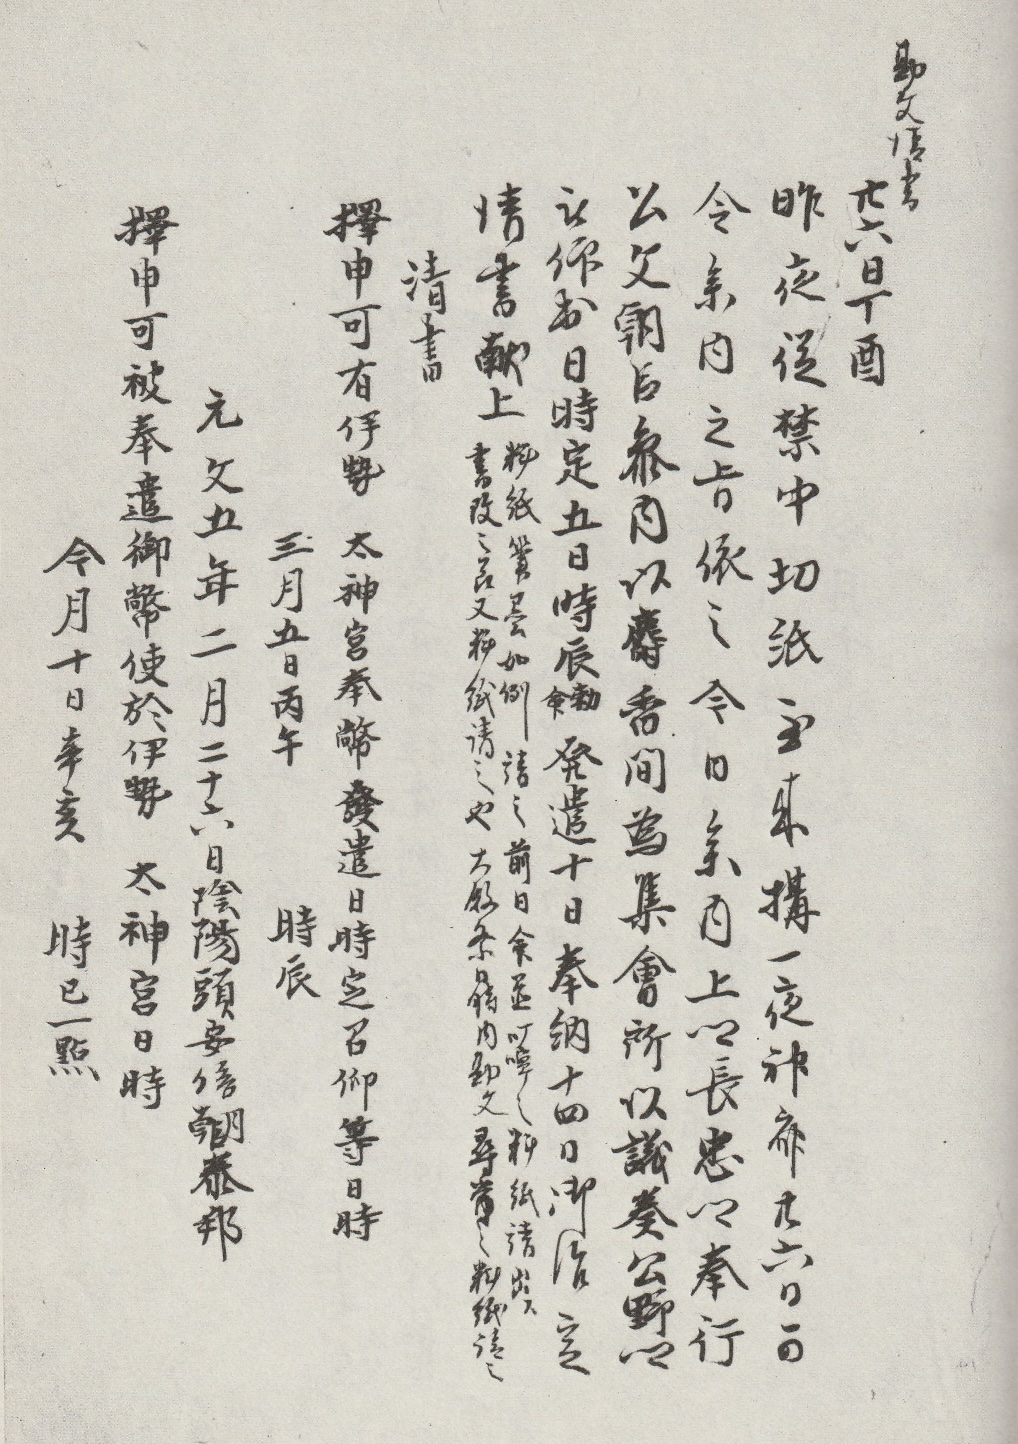 勘文清書
廿六日丁酉
昨夜従禁中切紙至来摂一夜神斎廿六日可
令参内之旨依之今日参内上卿長忠卿奉行
公文朝臣参内以麝香間為集會所以議奏公野卿
被仰出日時定五日時辰勅令発遣十日奉納十四日御治定
清書献上
料紙置墨如例請之前日余並
書改之又料紙請之也
清書
擇申可有伊勢 太神宮奉幣發遣日時定召仰等日時
三月五日丙午 時辰
元文五年二月二十六日陰陽頭安倍朝泰邦
擇申可被奉遣御幣使於伊勢 太神宮日時
今月十日辛亥 時巳一點